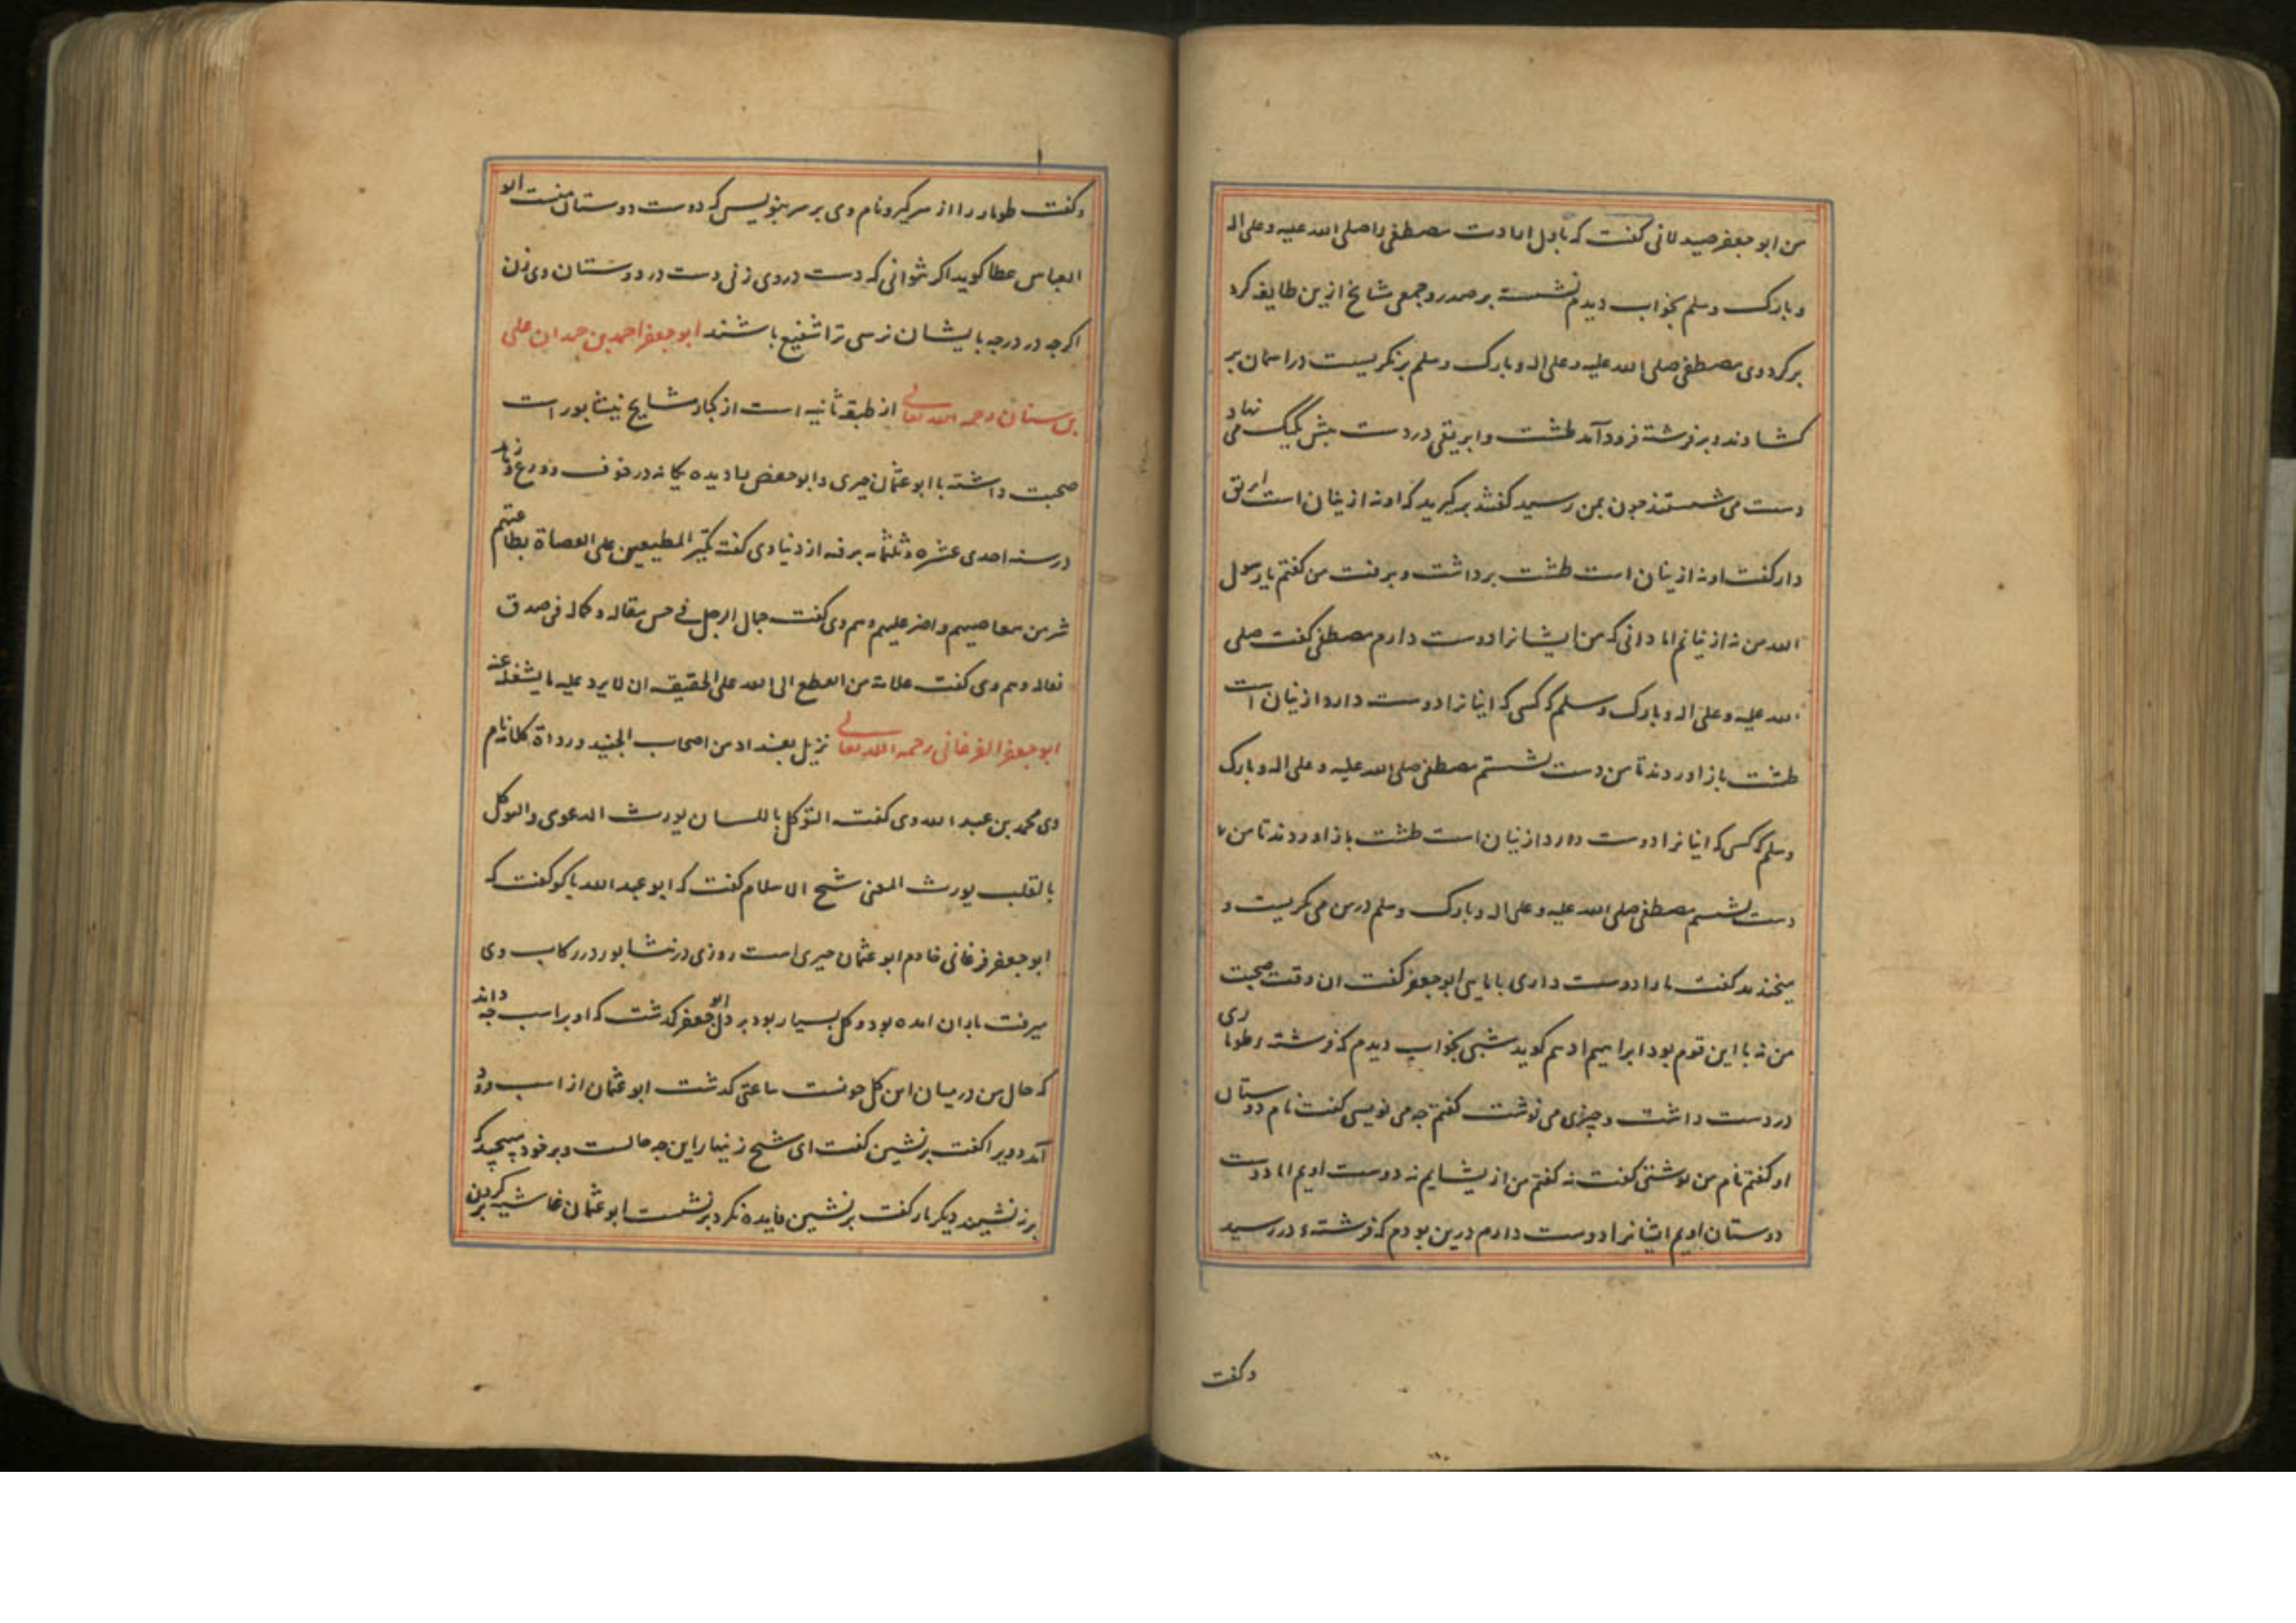 من ابو جعفر صیدلانی گفت که باول ارادت مصطفی را صلی الله علیه و علی اله
و بارک وسلم بخواب دیدم نشسته بر صدر و جمعی مشایخ ازین طایفه کرد
بر کرد وی مصطفی صلی الله علیه و علی اله و بارک وسلم برنکریست در اسمان بر
کشادند و بر فرشته فرود آمد طشت و ابریقی در دست پیش یک یک می نهاد
دست می شستند چون بمن رسید گفتند بر کیرید که او نه ازینان است ابریق
دار گفت او نه ازینان است طشت برداشت و برفت من گفتم یا رسول
الله من نه ازینانم اما دانی که من ایشانرا دوست دارم مصطفی گفت صلی
الله علیه و علی اله و بارک وسلم که کسی که اینانرا دوست دارد ازینان است
طشت باز اوردند تا من دست بشستم مصطفی صلی الله علیه و علی اله و بارک
وسلم که کسی که اینانرا دوست دارد ازینان است طشت باز اوردند تا من
دست بشستم مصطفی صلی الله علیه و علی اله و بارک وسلم در من می نکریست و
میخندید گفت ما را دوست داری با مایی ابو جعفر گفت ان وقت صحبت
من نه با این قوم بود ابراهیم ادهم کوید شبی بخواب دیدم که فرشتهء طوماری
در دست داشت و چیزی می نوشت گفتم چه می نویسی گفت نام دوستان
او گفتم نام من نوشتی گفت نه گفتم من از یشایم نه دوست اویم اما دوست
دوستان اویم ایشانرا دوست دارم درین بودم که فرشتهء در رسید
وگفت
وگفت طومار را از سر کیر و نام وی بر سر بنویس که دوست دوستان منست ابو
العباس عطا کوید اکر نتوانی که دست در وی زنی دست در دوستان وی زن
اکرچه در درجه بایشان نرسی ترا شفیع باشند ابو جعفر احمد بن حمدان علی
بن سنان رحمه الله تعالی از طبقه ثانیه است از کبار مشایخ نیشابور است
صحبت داشته با ابو عثمان حیری و ابو حفص را دیده یکانه در خوف و ورع و زهد
در سنه احدی عشره و ثلثمایه برفته از دنیا وی گفت تکبر المطیعین علی العصاة بطاعتهم
شر من معاصیهم و اضر علیهم و هم وی گفت جمال الرجل فی حسن مقاله و کماله فی صدق
فعاله و هم وی گفت علامة من انقطع الی الله علی الحقیقه ان لا یرد علیه ما یشغله عنه
ابو جعفر الفرغانی رحمه الله تعالی نزیل بغداد من اصحاب الجنید و رواة کلامه نام
وی محمد بن عبد الله وی گفت التوکل باللسان یورث الدعوی والتوکل
بالقلب یورث المعنی شیخ الاسلام گفت که ابو عبد الله باکو گفت که
ابو جعفر فرغانی خادم ابو عثمان حیری است روزی در نشابور در رکاب وی
میرفت باران امده بود و کل بسیار بود بر دل ابو جعفر کدشت که او بر اسب چه داند
که حال من درمیان این کل چونست ساعتی کدشت ابو عثمان از اسب فرود
آمد و ویرا گفت برنشین گفت ای شیخ زنهار این چه حالست و بر خود پیچید که
برنه نشیند دیکر بار گفت برنشین فایده نکرد برنشست ابو عثمان غاشیه بر کردن